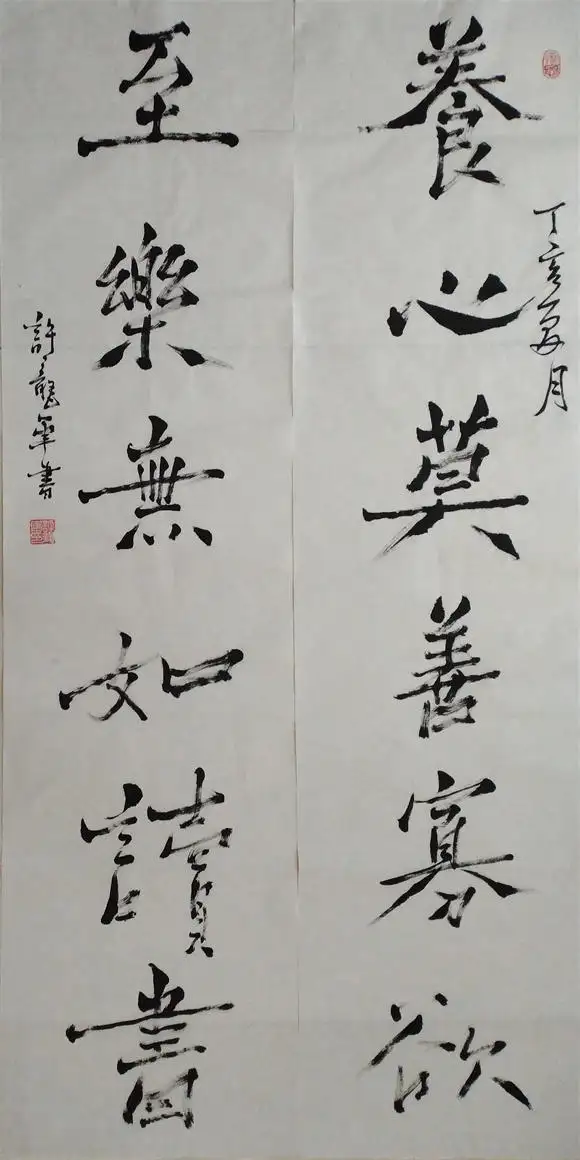 丁亥夏月
養心莫善寡欲
至樂無如讀書
許龍華書